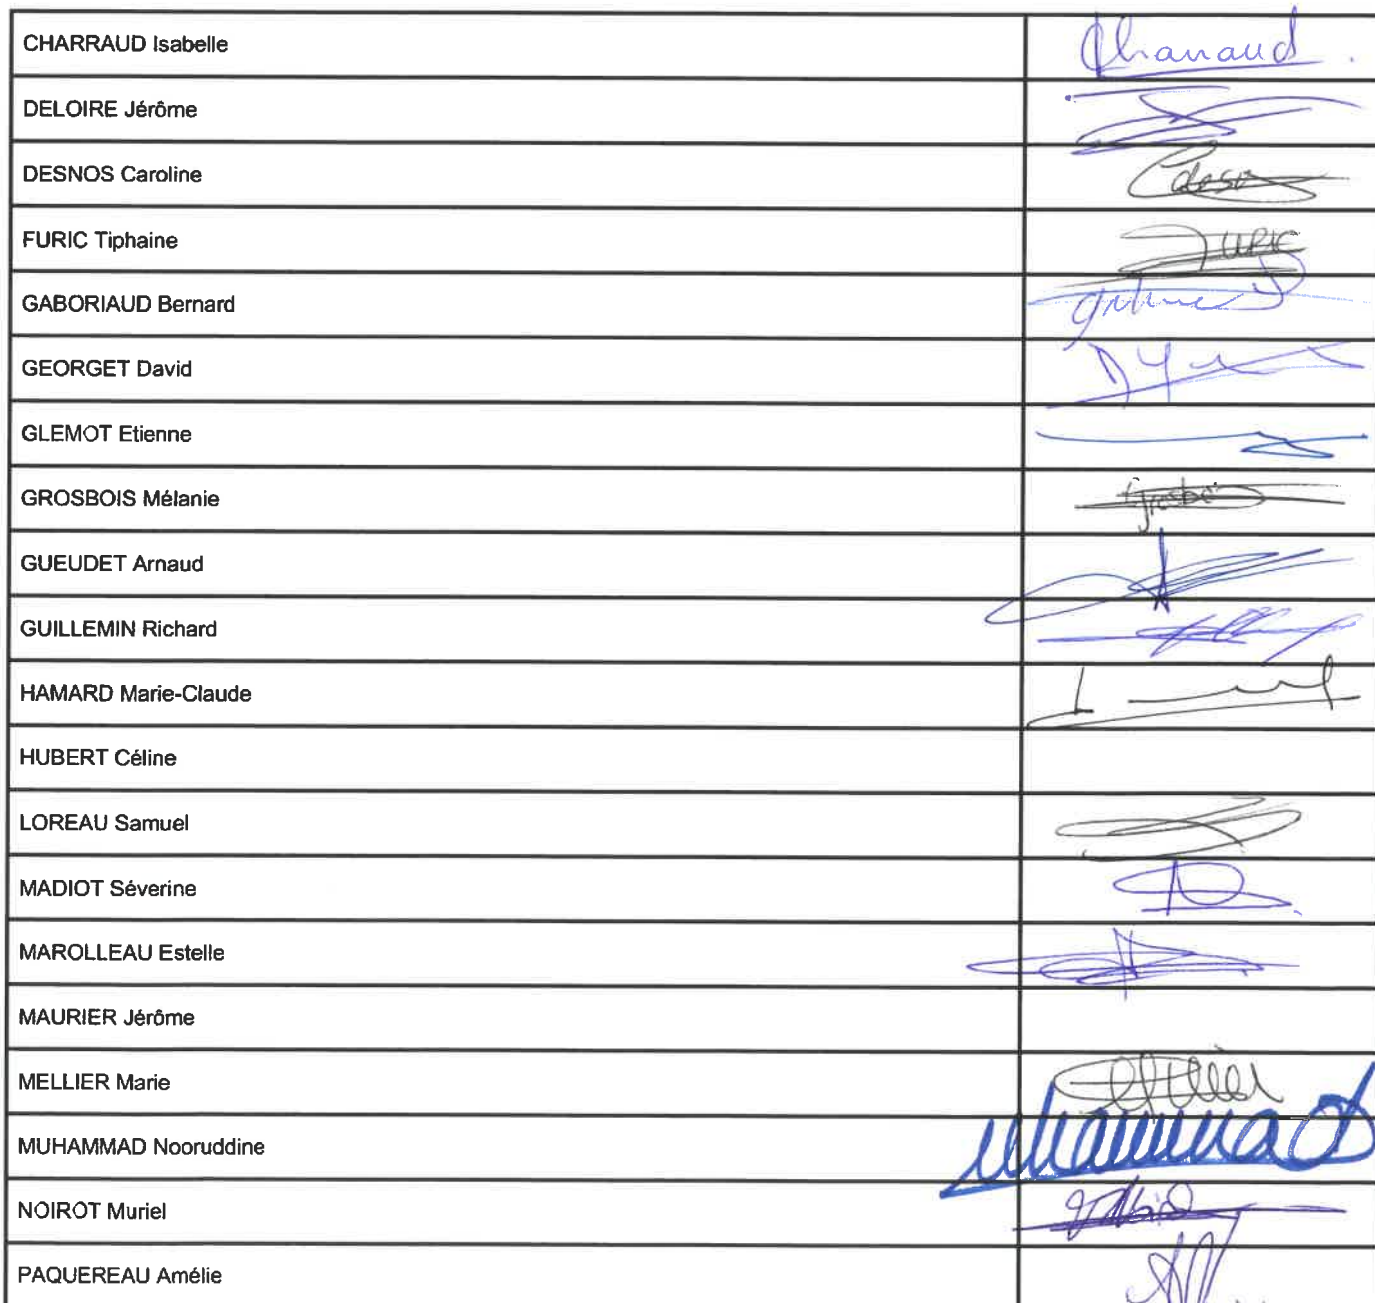 CHARRAUD Isabelle Charraud
DELOIRE Jérôme
DESNOS Caroline Cdesn
FURIC Tiphaine FURIC
GABORIAUD Bernard
GEORGET David
GLEMOT Etienne
GROSBOIS Mélanie Grosboi
GUEUDET Arnaud
GUILLEMIN Richard
HAMARD Marie-Claude
HUBERT Céline
LOREAU Samuel
MADIOT Séverine
MAROLLEAU Estelle
MAURIER Jérôme
MELLIER Marie
MUHAMMAD Nooruddine
NOIROT Muriel
PAQUEREAU Amélie